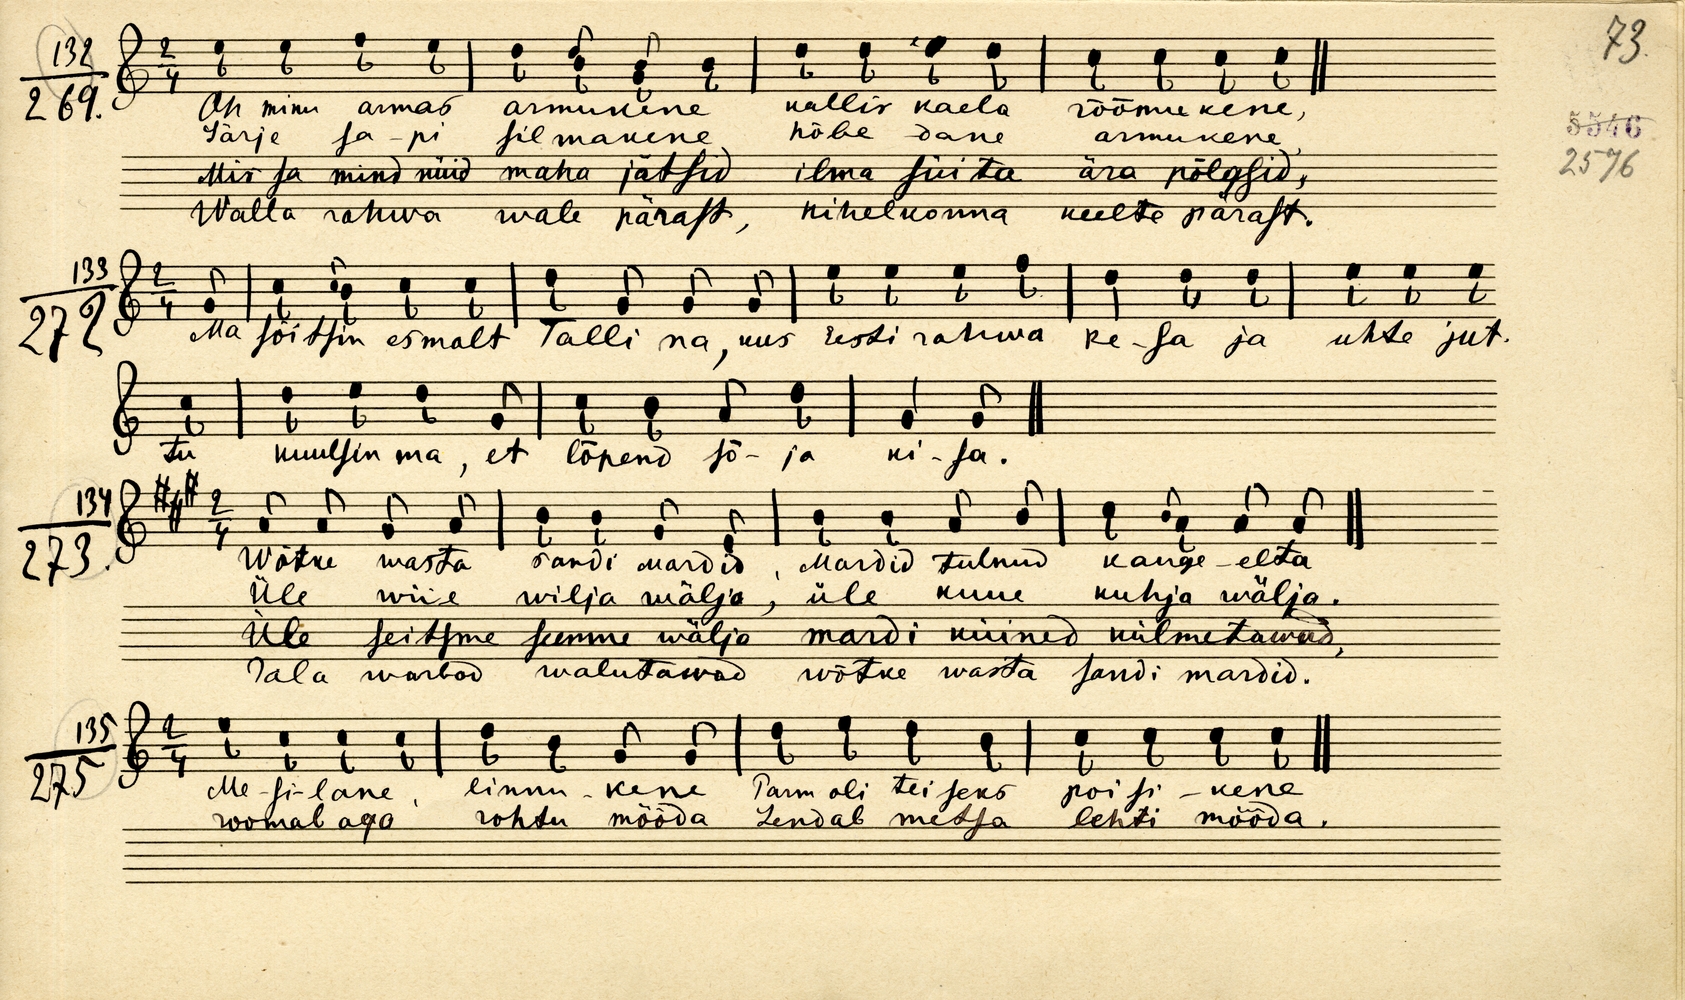 73.
132
269.
2/4
Oh minu armas armukene kallis kaela rõõmukene,
Särje sa-pi silmakene hõbe dane armukene,
Mis sa mind nüid maha jätsid ilma süita ära põlgsid,
Walla rahwa wale pärast, kihelkonna keelte pärast.
5546
2576
133
272
2/4
Ma sõitsin esmalt Talli na, kus Eesti rahwa ke-sa ja uhte jut-
tu kuulsin ma, et lõpend sõ-ja ki-sa.
134
273.
2/4
Wõtke wasta sandi mardid, Mardid tulnud kauge-elta
Üle wiie wilja wälja, üle kuue kuhja wälja.
Üle seitsme seemne wälja mardi küined külmetawad,
Jala warbad walutawad wõtke wasta sandi mardid.
135
275
2/4
Me-si-lane, linnu-kene Parm oli teiseks poisi-kene
roomab aga rohtu mööda Lendab metsa lehti mööda.